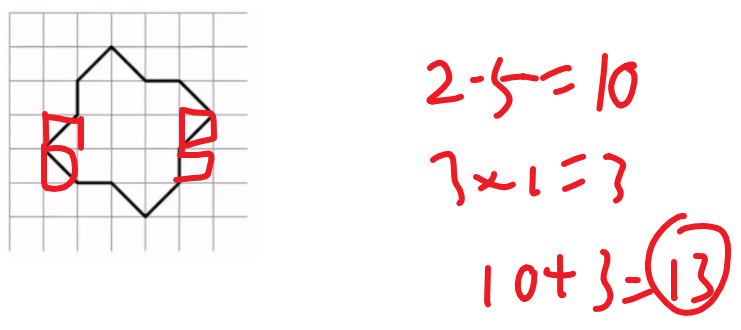 2·5=10
3×1=3
10+3=13